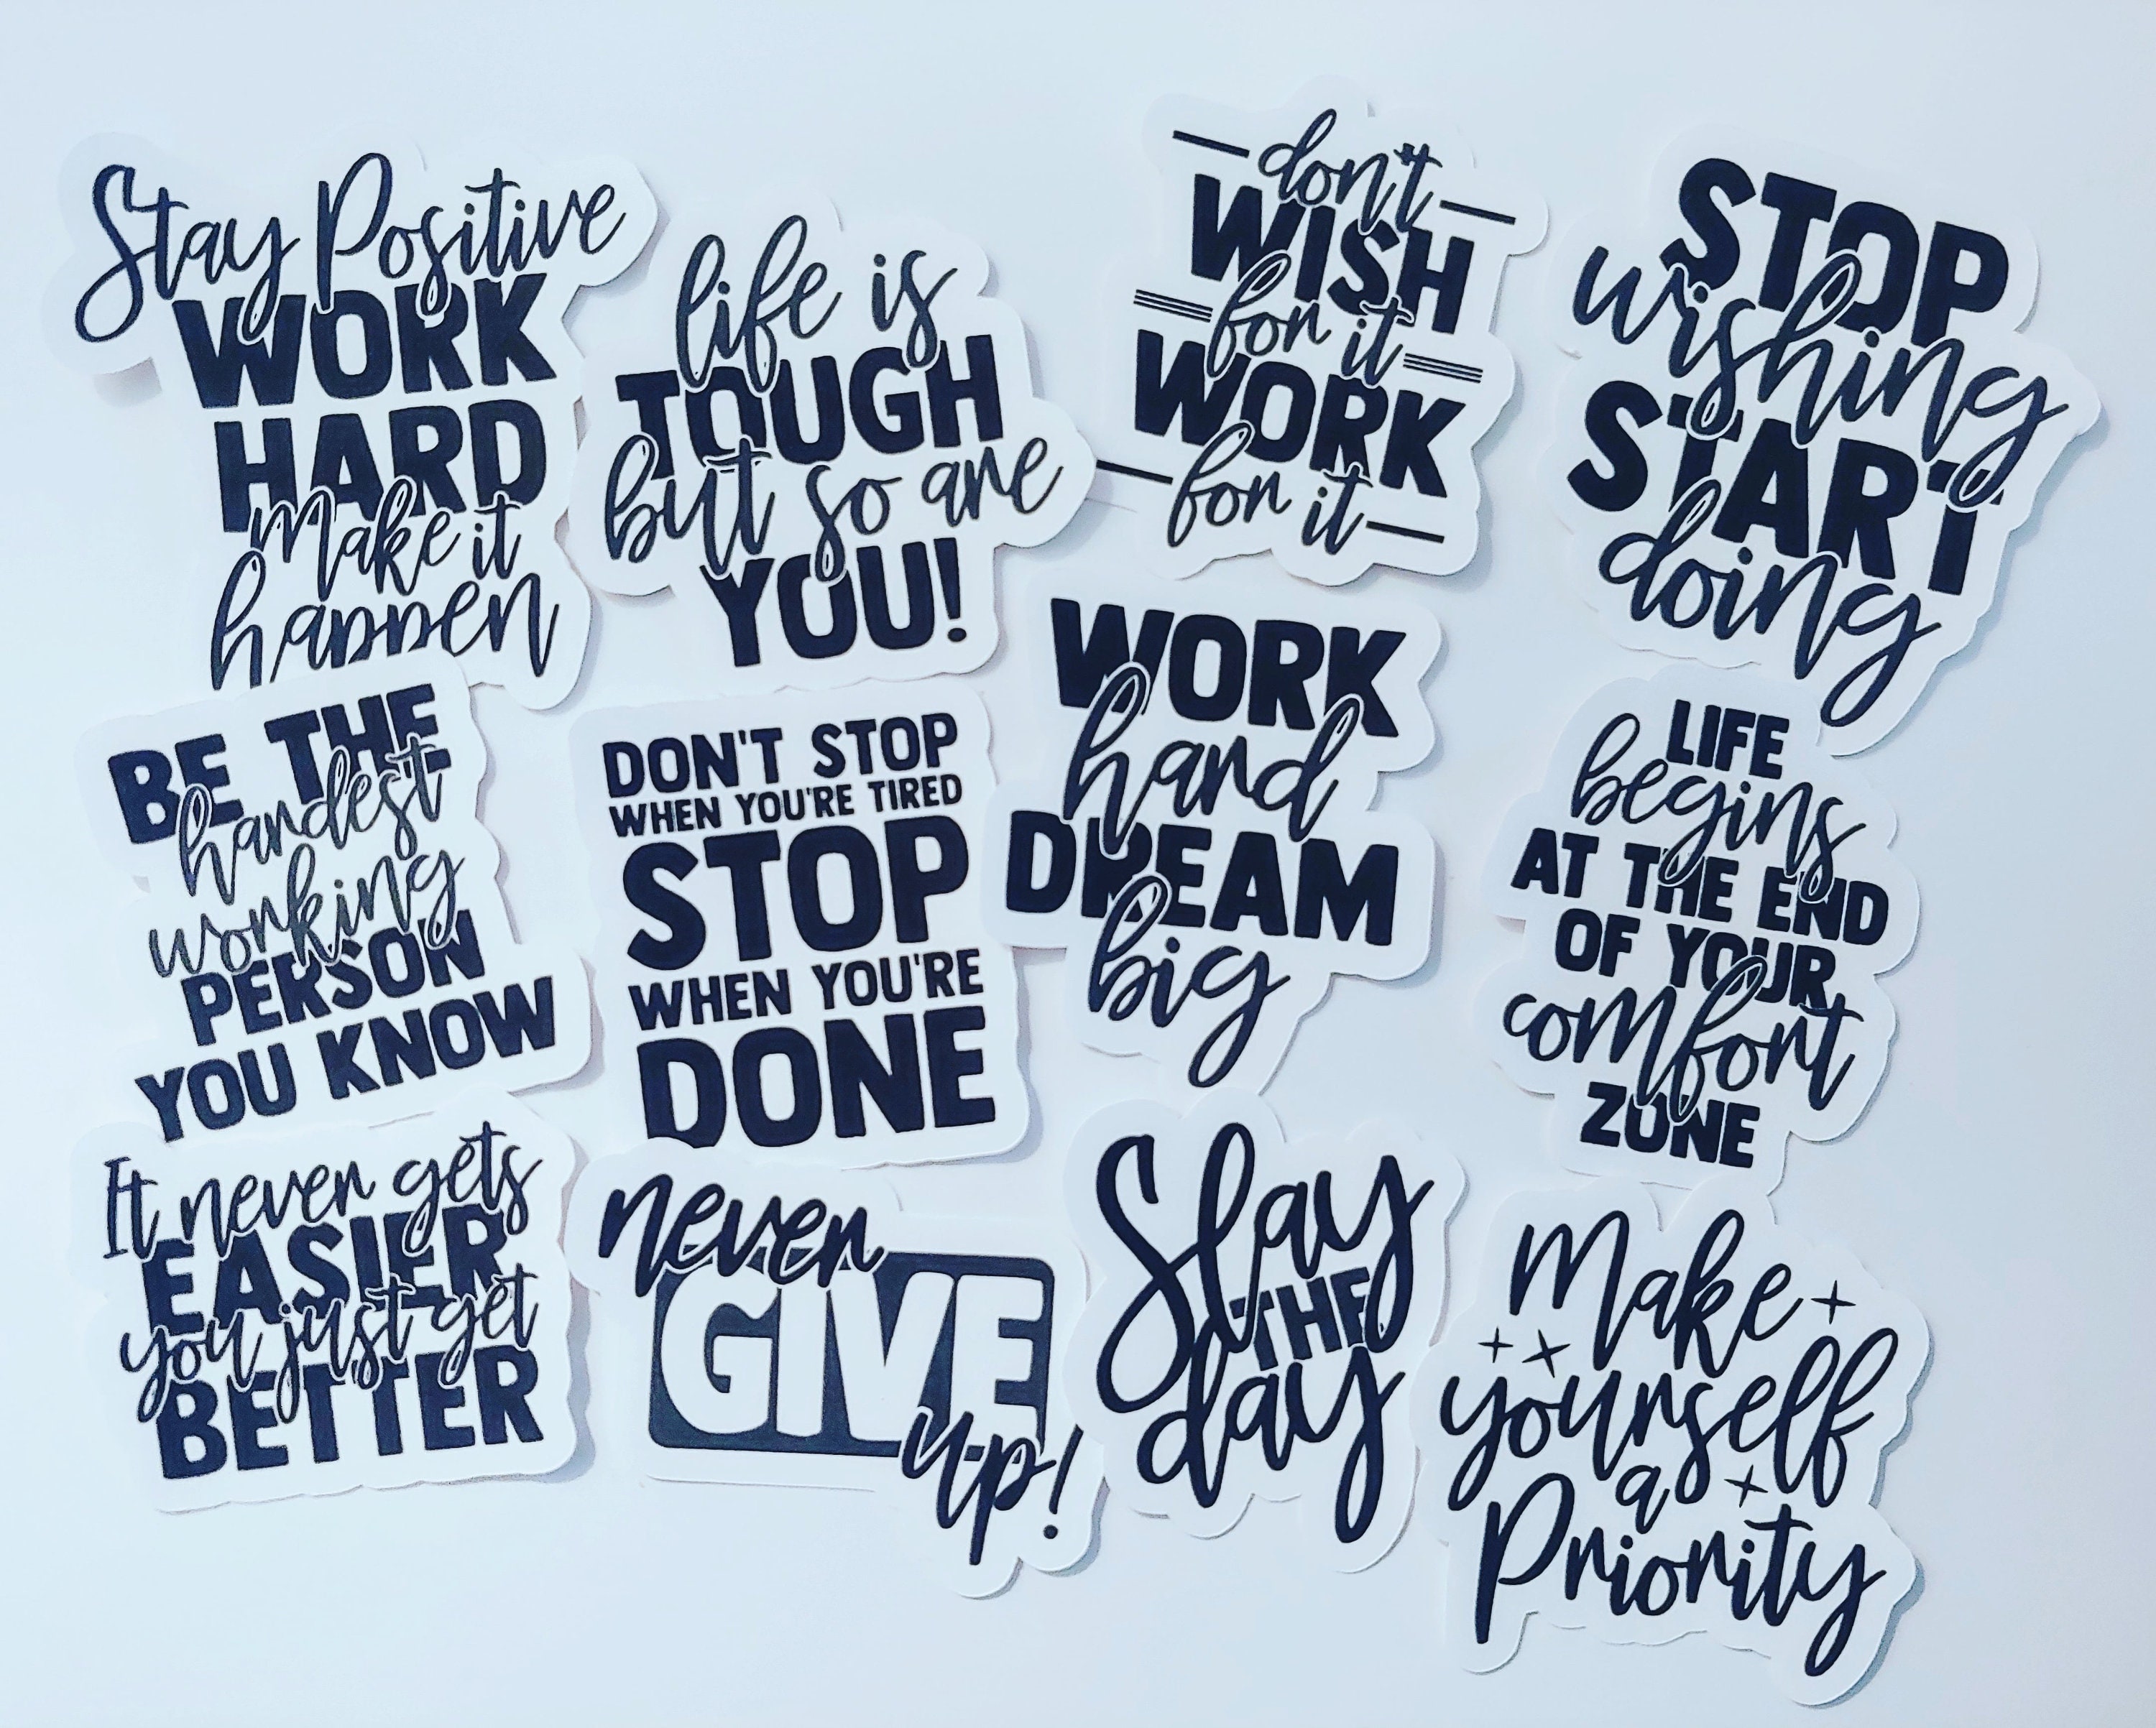 Stay Positive
WORK
HARD
Make it
happen
life is
TOUGH
but so are
YOU!
don't
WISH
for it
WORK
for it
STOP
wishing
START
doing
BE THE
hardest
working
PERSON
YOU KNOW
DON'T STOP
WHEN YOU'RE TIRED
STOP
WHEN YOU'RE
DONE
WORK
hard
DREAM
big
LIFE
begins
AT THE END
OF YOUR
comfort
ZONE
It never gets
EASIER
you just get
BETTER
never
GIVE
up!
Slay
THE
day
Make
yourself
a
Priority